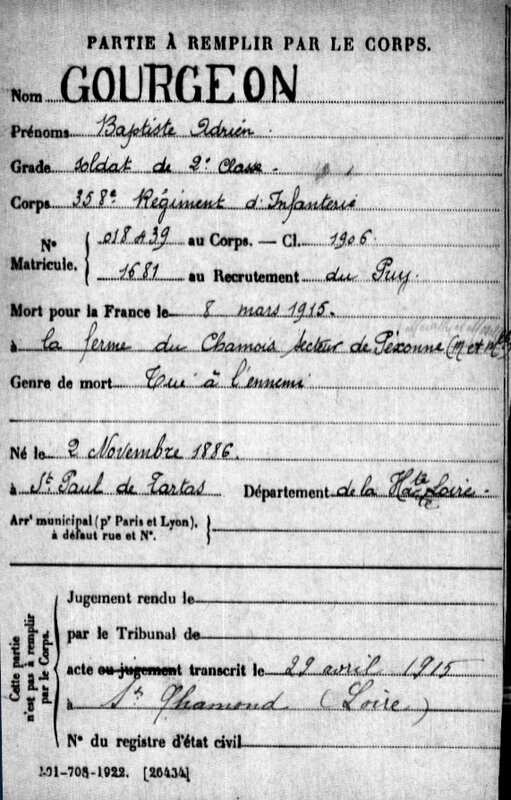 PARTIE À REMPLIR PAR LE CORPS.
Nom GOURGEON
Prénoms Baptiste Adrien.
Grade soldat de 2e Classe.
Corps 358e Régiment d'Infanterie
N° Matricule. { 018439 au Corps. — Cl. 1906
1681 au Recrutement du Puy.
Mort pour la France le 8 mars 1915.
à la ferme du Chamois secteur de Pexonne (M et M)
Genre de mort Tué à l'ennemi
Né le 2 Novembre 1886.
à St Paul de Tartas Département de la Hte Loire
Arrt municipal (pr Paris et Lyon), à défaut rue et N°. }
Cette partie n'est pas à remplir par le Corps. {
Jugement rendu le
par le Tribunal de
acte ou jugement transcrit le 29 avril 1915
à St Chamond (Loire)
N° du registre d'état civil
101-708-1922. [26434]